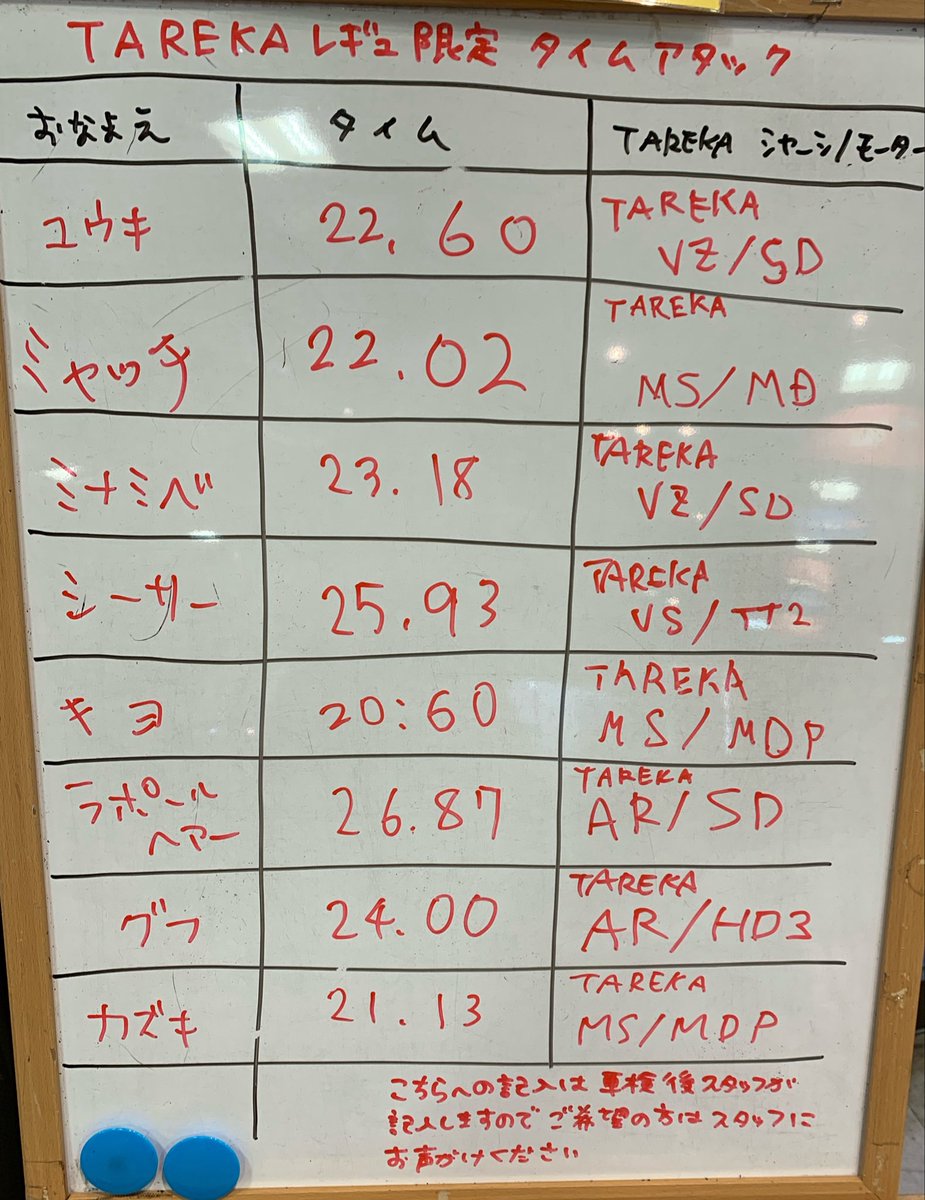 TAREKA レギュ 限定 タイムアタック
おなまえ タイム TAREKA シャーシ/モーター
ユウキ 22.60 TAREKA
VZ/SD
ミヤッチ 22.02 TAREKA
MS/MD
ミナミベ 23.18 TAREKA
VZ/SD
シーサー 25.93 TAREKA
VS/TT2
キヨ 20:60 TAREKA
MS/MDP
ラポール 26.87 TAREKA
ヘアー AR/SD
グフ 24.00 TAREKA
AR/HD3
カズキ 21.13 TAREKA
MS/MDP
こちらへの記入は 車検後スタッフが
記入しますので ご希望の方はスタッフに
お声がけください